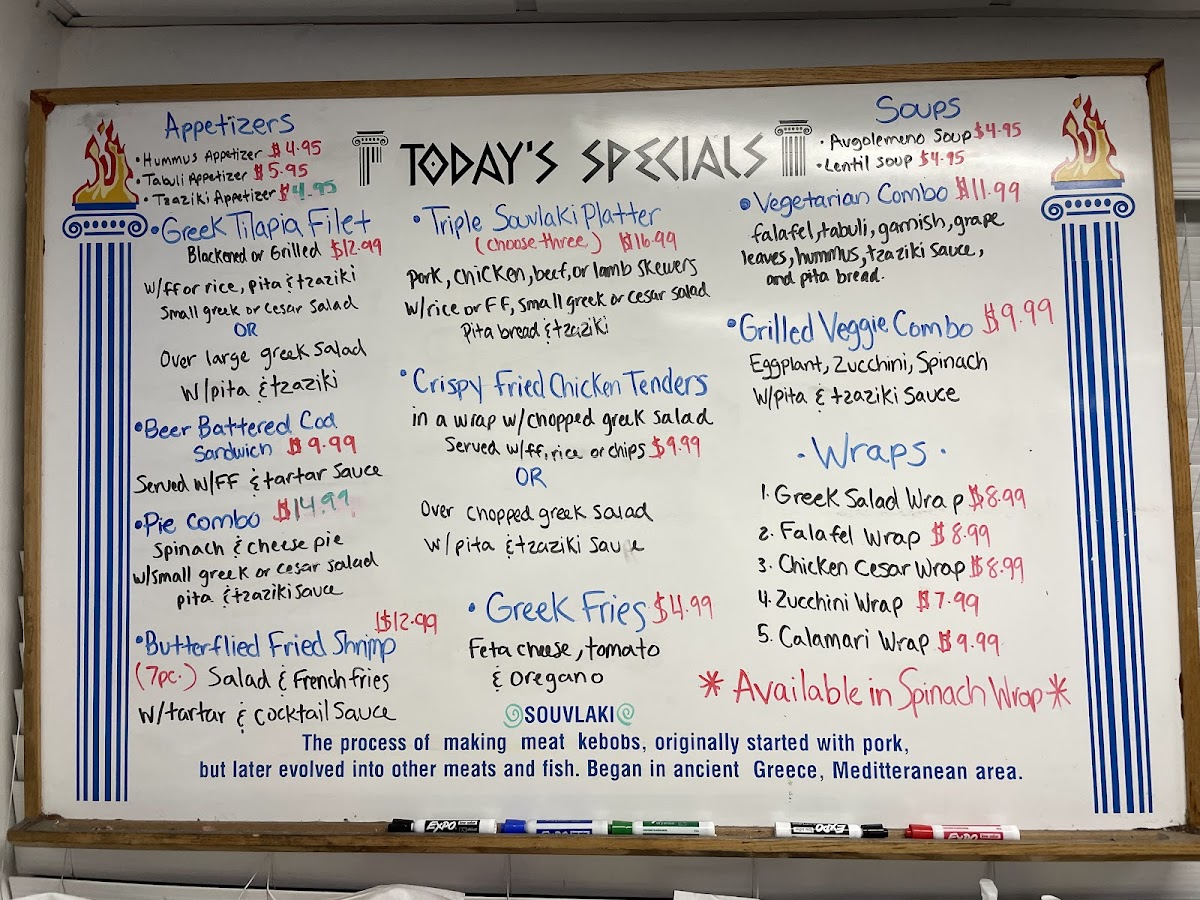 Appetizers
• Hummus Appetizer $4.95
• Tabuli Appetizer $5.95
• Tzaziki Appetizer $4.95
• Greek Tilapia Filet
Blackened or Grilled $12.99
w/ff or rice, pita & tzaziki
Small greek or cesar Salad
OR
Over large greek Salad
w/pita & tzaziki
• Beer Battered Cod
Sandwich $9.99
Served w/FF & tartar Sauce
• Pie Combo $14.99
Spinach & cheese pie
w/small greek or cesar salad
pita & tzaziki sauce
$12.99
• Butterflied Fried Shrimp
(7pc.) Salad & French fries
w/tartar & cocktail Sauce
TODAY'S SPECIALS
• Triple Souvlaki Platter
(choose three) $16.99
pork, chicken, beef, or lamb skewers
w/rice or FF, small greek or cesar salad
Pita bread & tzaziki
• Crispy Fried Chicken Tenders
in a wrap w/chopped greek salad
Served w/ff, rice or chips $9.99
OR
Over chopped greek salad
w/pita & tzaziki Sauce
• Greek Fries $4.99
Feta cheese, tomato
& oregano
Soups
• Avgolemeno Soup $4.95
• Lentil soup $4.95
• Vegetarian Combo $11.99
falafel, tabuli, garnish, grape
leaves, hummus, tzaziki sauce,
and pita bread.
• Grilled Veggie Combo $9.99
Eggplant, Zucchini, Spinach
w/pita & tzaziki sauce
• Wraps •
1. Greek Salad Wrap $8.99
2. Falafel Wrap $8.99
3. Chicken Cesar Wrap $8.99
4. Zucchini Wrap $7.99
5. Calamari Wrap $9.99
* Available in Spinach Wrap *
SOUVLAKI
The process of making meat kebobs, originally started with pork,
but later evolved into other meats and fish. Began in ancient Greece, Meditteranean area.
EXPO
EXPO
EXPO
EXPO